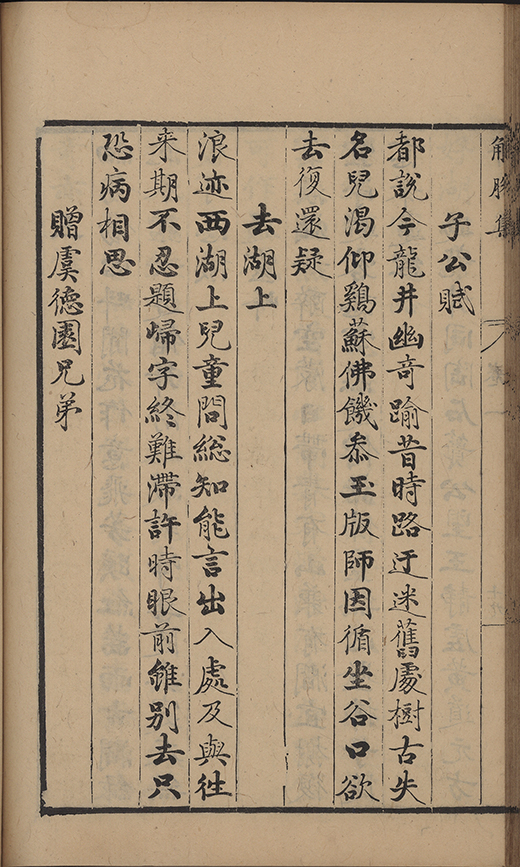 解脫集
子公賦
都說今龍井幽奇踰昔時路迂迷舊處樹古失
名兒渴仰鷄蘇佛饑叅玉版師因循坐谷口欲
去復還疑
去湖上
浪迹西湖上兒童問総知能言出入處及與徃
来期不忍題帰字終難滯許時眼前雖别去只
恐病相思
贈虞德園兄弟